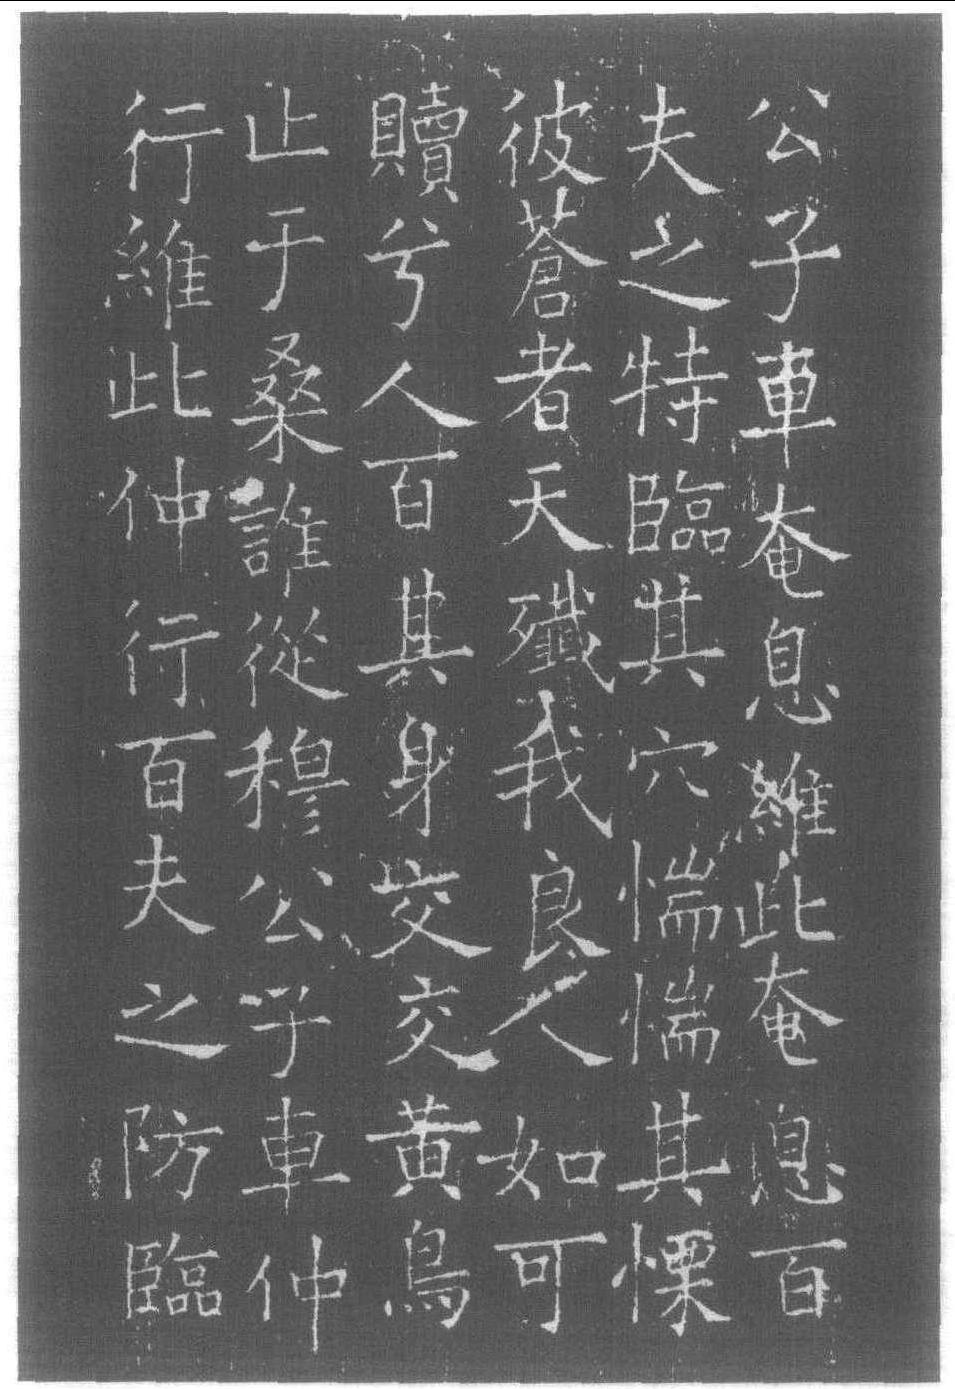 公子車奄息維此奄息百
夫之特臨其穴惴惴其慄
彼蒼者天殲我良人如可
贖兮人百其身交交黃鳥
止于桑誰從穆公子車仲
行維此仲行百夫之防臨